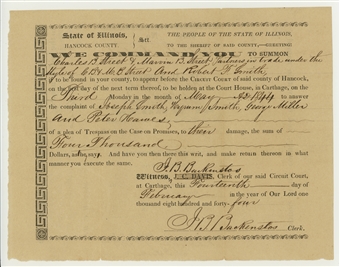 State of Illinois,
HANCOCK COUNTY. Sct.
THE PEOPLE OF THE STATE OF ILLINOIS,
TO THE SHERIFF OF SAID COUNTY,—GREETING:
WE COMMAND YOU TO SUMMON
Charles B. Street & Marvin B. Street partners in trade under the
style of C. B & M. B Street And Robert F. Smith
to be found in your county, to appear before the Circuit Court of said county of Hancock,
on the first day of the next term thereof, to be holden at the Court House, in Carthage, on the
Third Monday in the month of May AD 1844 to answer the
complaint of Joseph Smith, Hyrum Smith, George Miller
and Peter Hawes
of a plea of Trespass on the Case on Promises, to their damage, the sum of
Four Thousand
Dollars, as they say. And have you then there this writ, and make return thereon in what
manner you execute the same.
J. B. Backenstos
Witness, J. C. DAVIS, Clerk of our said Circuit Court,
at Carthage, this Fourteenth day of
February in the year of Our Lord one
thousand eight hundred and forty- four
J. B. Backenstos Clerk.